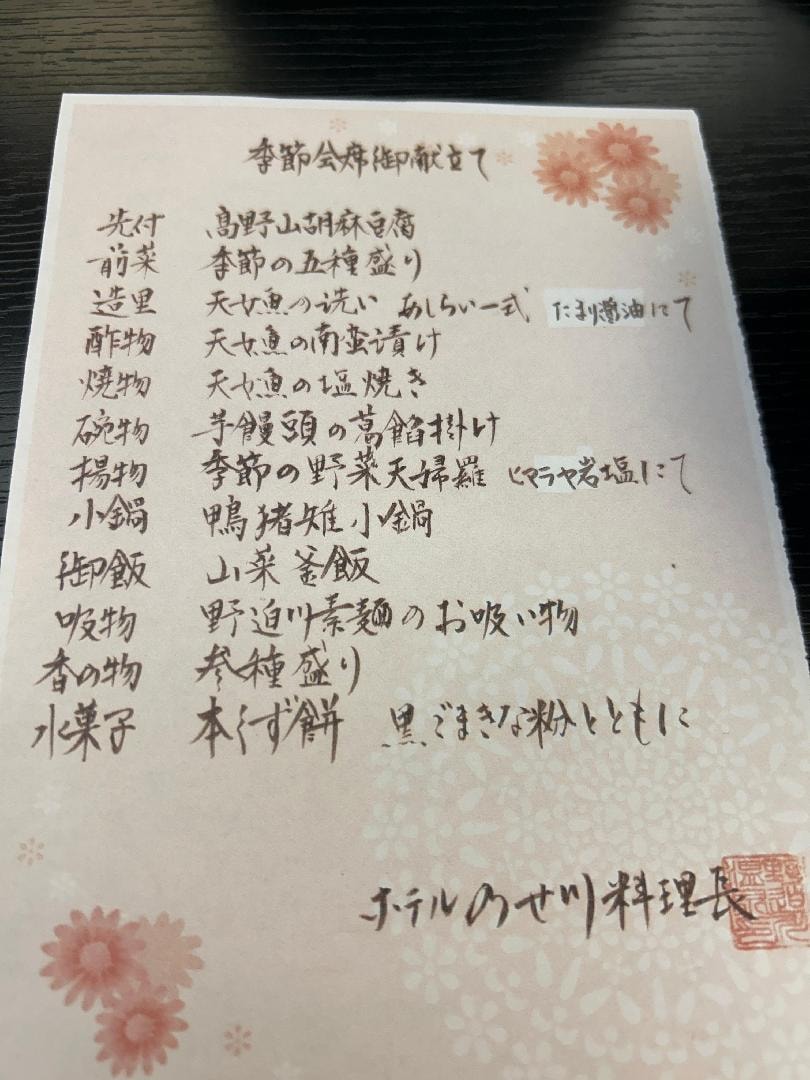 季節会席御献立て
先付 高野山胡麻豆腐
前菜 季節の五種盛り
造里 天女魚の洗い あしらい一式 たまり醤油にて
酢物 天女魚の南蛮漬け
焼物 天女魚の塩焼き
碗物 芋饅頭の葛餡掛け
揚物 季節の野菜天婦羅 ヒマラヤ岩塩にて
小鍋 鴨猪雉小鍋
御飯 山菜釜飯
吸物 野迫川素麺のお吸い物
香の物 参種盛り
水菓子 本くず餅 黒ごまきな粉とともに
ホテルのせ川料理長